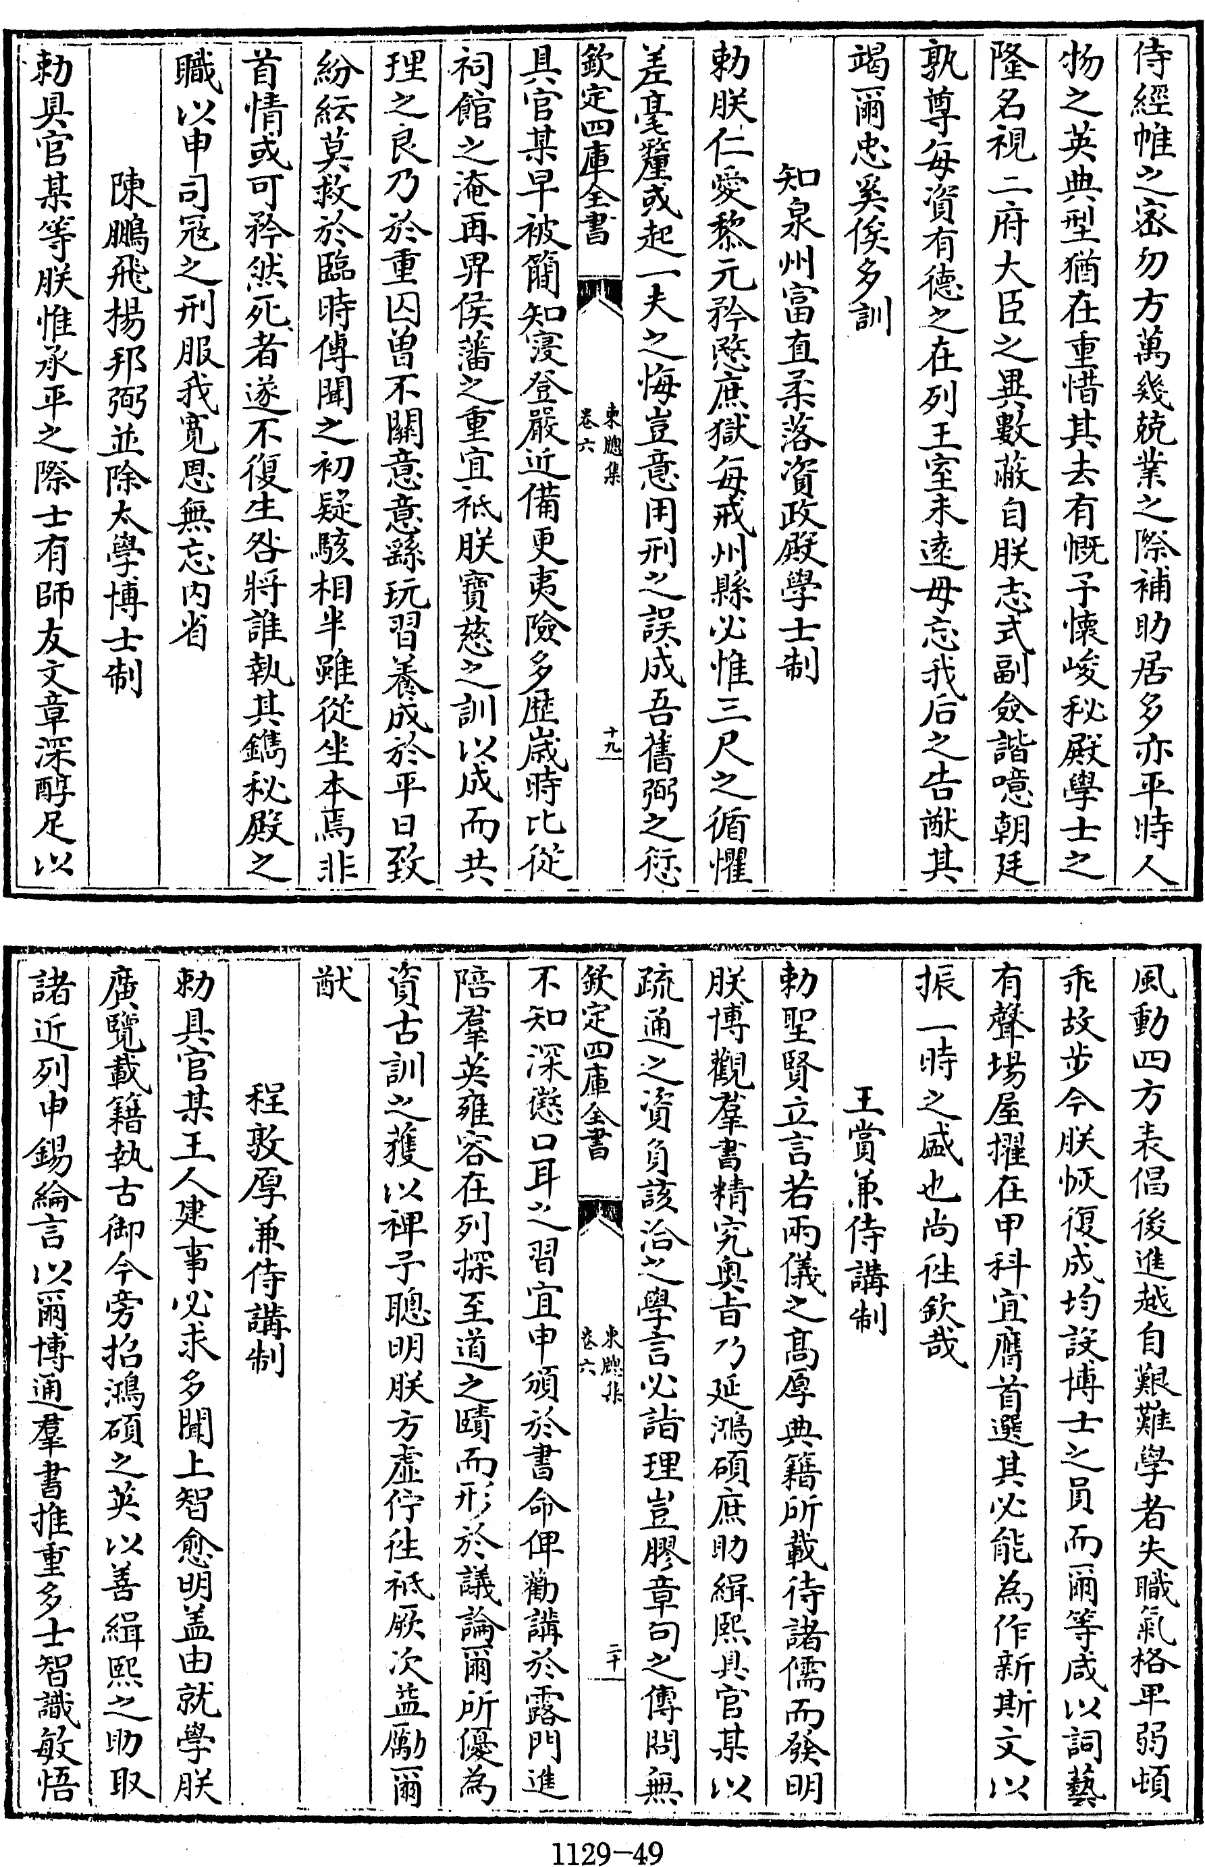 侍經帷之密勿方萬幾兢業之際補助居多亦平時人
物之英典型猶在重惜其去有慨予懷峻秘殿學士之
隆名視二府大臣之異數蔽自朕志式副僉諧噫朝廷
孰尊每資有德之在列王室未遠毋忘我后之告猷其
竭爾忠奚俟多訓
知泉州富直柔落資政殿學士制
勅朕仁愛黎元矜愍庶獄每戒州縣必惟三尺之循懼
差毫釐或起一夫之悔豈意用刑之誤成吾舊弼之愆
欽定四庫全書
東牕集
卷六
十九
具官某早被簡知寖登嚴近備更夷險多歴歲時比從
祠館之淹再畀侯藩之重宜祗朕寶慈之訓以成而共
理之良乃於重囚曽不關意意繇玩習養成於平日致
紛紜莫救於臨時傅聞之初疑駭相半雖從坐本焉非
首情或可矜然死者遂不復生咎將誰執其鐫秘殿之
職以申司冦之刑服我寛恩無忘内省
陳鵬飛楊邦弼並除太學博士制
勅具官某等朕惟承平之際士有師友文章深醇足以
風動四方表倡後進越自艱難學者失職氣格卑弱頓
乖故步今朕恢復成均設博士之員而爾等咸以詞藝
有聲場屋擢在甲科宜膺首選其必能為作新斯文以
振一時之盛也尚徃欽哉
王賞兼侍講制
勅聖賢立言若兩儀之髙厚典籍所載待諸儒而發明
朕博觀羣書精究奥旨乃延鴻碩庶助緝熙具官某以
疏通之資負該洽之學言必詣理豈膠章句之傳問無
欽定四庫全書
東牕集
卷六
二十
不知深懲口耳之習宜申頒於書命俾勸講於露門進
陪羣英雍容在列探至道之賾而形於議論爾所優為
資古訓之獲以裨予聰明朕方虚佇徃祗厥次益勵爾
猷
程敦厚兼侍講制
勅具官某王人建事必求多聞上智愈明盖由就學朕
廣覽載籍執古御今旁招鴻碩之英以善緝熙之助取
諸近列申錫綸言以爾博通羣書推重多士智識敏悟
1129-49